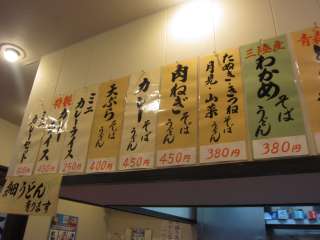 三陸産
わかめ
そば
うどん
380円
たぬき・きつね
月見・山菜
そば
うどん
380円
肉ねぎ
そば
うどん
450円
カレー
そば
うどん
450円
天ぷら
そば
うどん
400円
ミニ
カレーライス
250円
特製
カレーライス
450円
細うどん
有ります